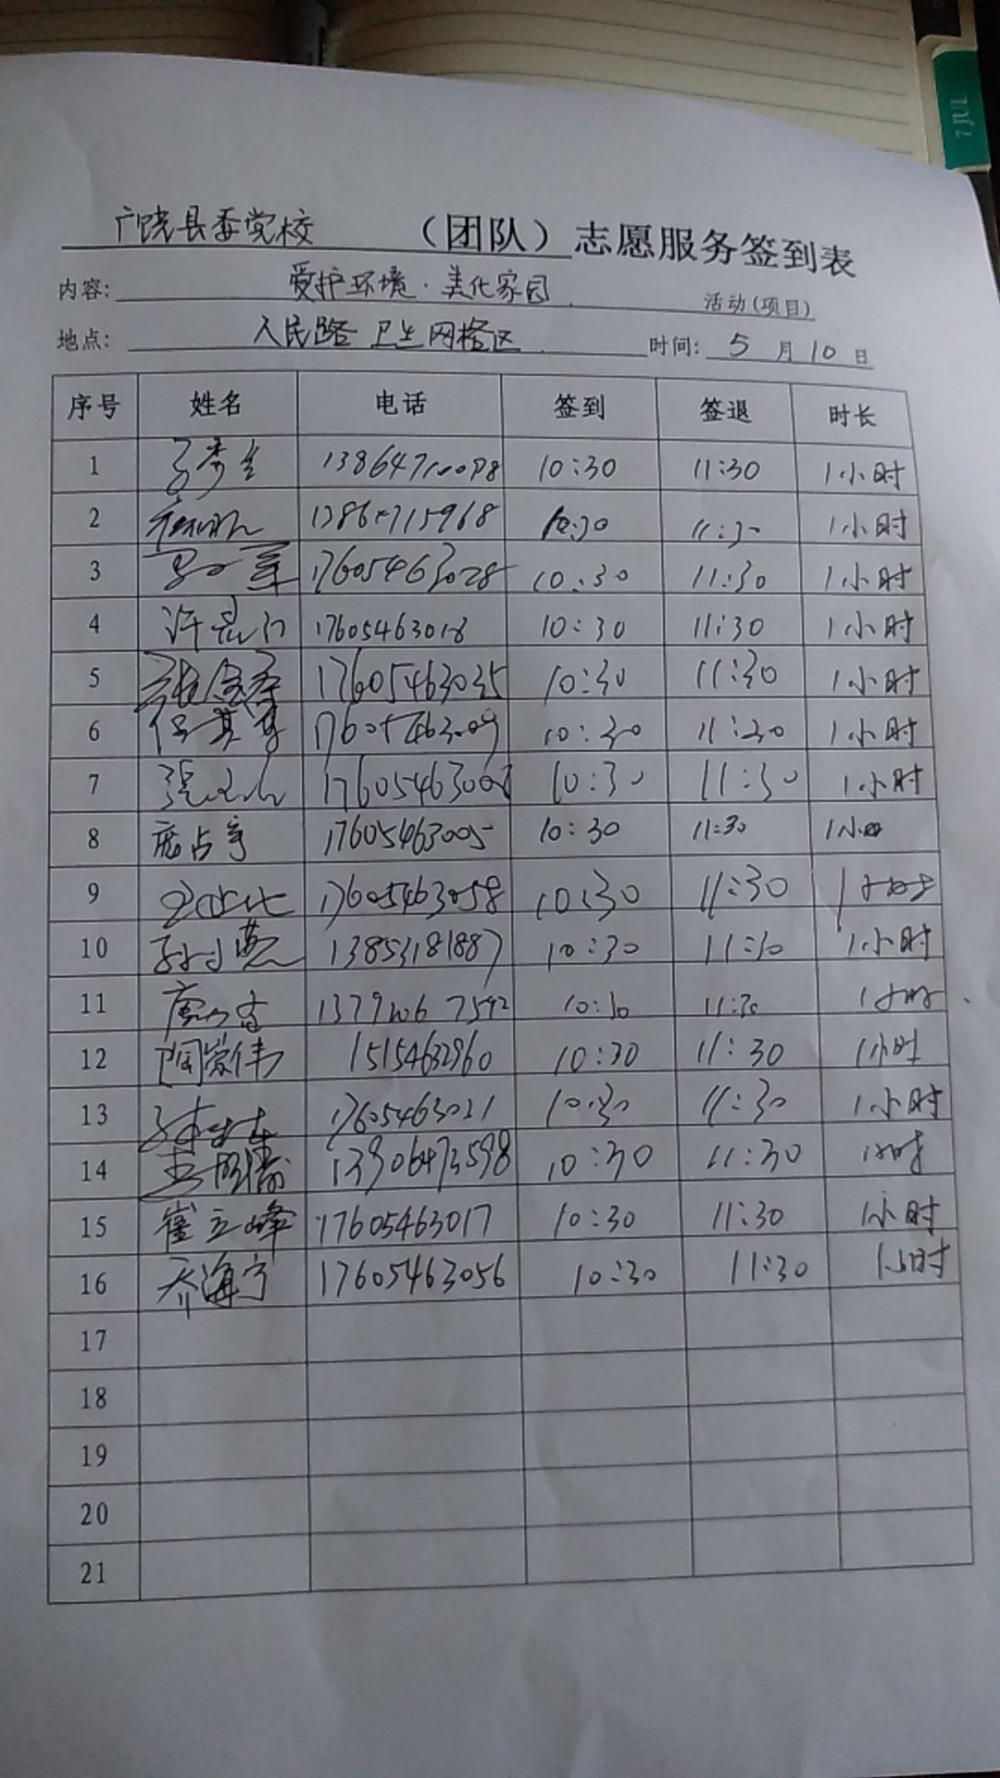 广饶县委党校 （团队）志愿服务签到表
内容： 爱护环境·美化家园 活动(项目)
地点： 人民路卫生网格区 时间： 5 月 10 日
序号 姓名 电话 签到 签退 时长
1 10:30 11:30 1小时
2 10:30 11:30 1小时
3 17605463028 10:30 11:30 1小时
4 10:30 11:30 1小时
5 17605463035 10:30 11:30 1小时
6 17605463009 10:30 11:30 1小时
7 10:30 11:30 1小时
8 庞占亭 17605463005 10:30 11:30 1小
9 17605463058 10:30 11:30 1小时
10 13853181887 10:30 11:30 1小时
11 10:30 11:30 1小时
12 陶崇伟 15154632960 10:30 11:30 1小时
13 17605463021 10:30 11:30 1小时
14 13906473598 10:30 11:30 1小时
15 崔立峰 17605463017 10:30 11:30 1小时
16 乔海宁 17605463056 10:30 11:30 1小时
17
18
19
20
21
7 JUL